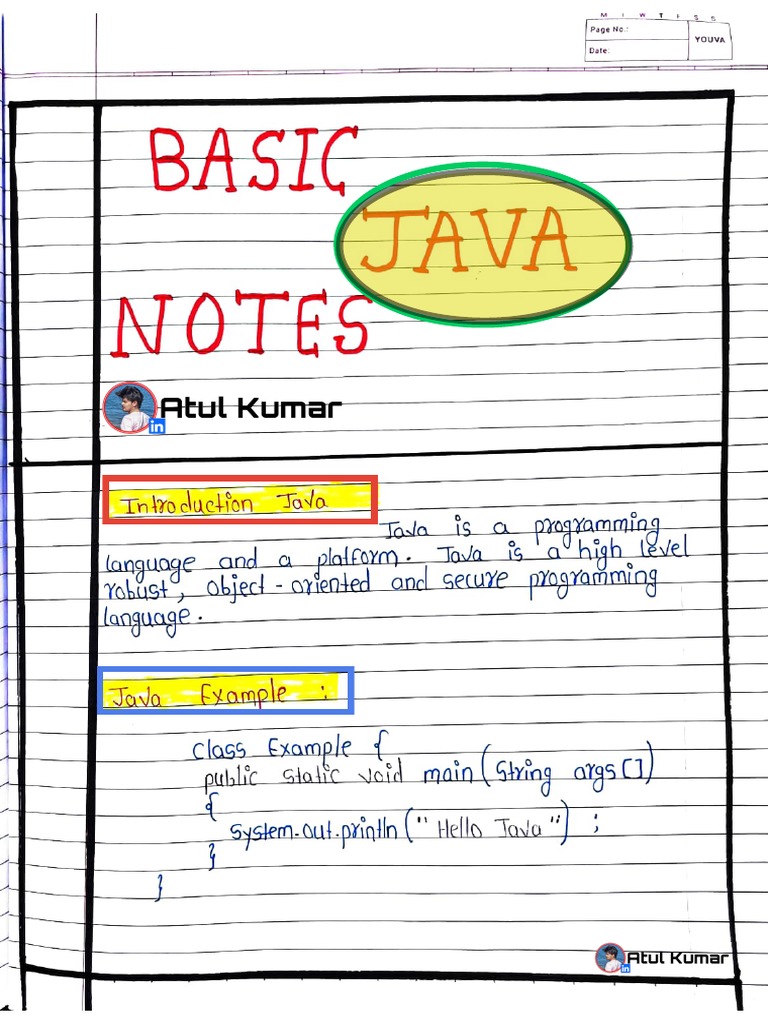 M T W T F S S
Page No.:
Date:
YOUVA
BASIC
JAVA
NOTES
Atul Kumar
in
Introduction Java
Java is a programming
language and a platform. Java is a high level
robust, object-oriented and secure programming
language.
Java Example :
Class Example {
public static void main (String args [])
{
System.out.println ("Hello Java") ;
}
}
Atul Kumar
in